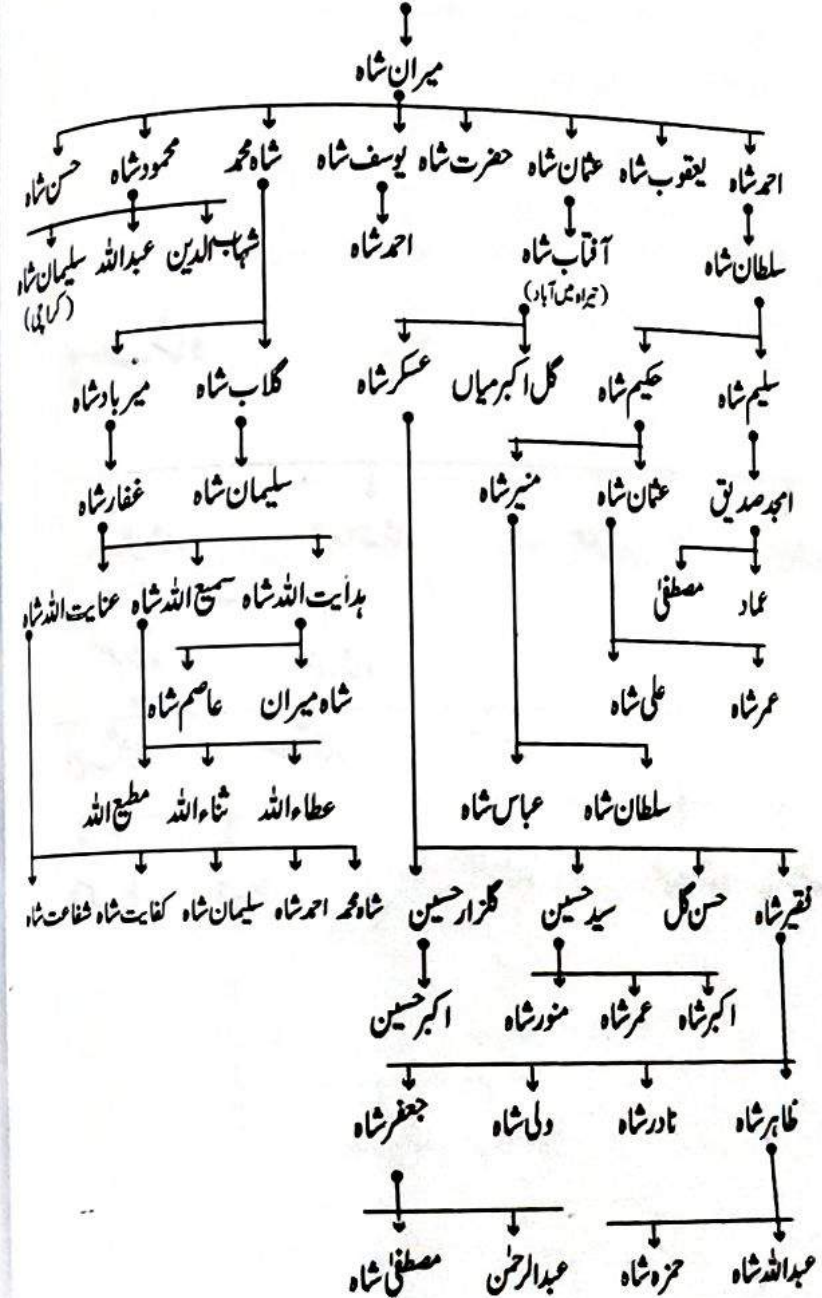 میران شاہ
احمد شاہ یعقوب شاہ عثمان شاہ حضرت شاہ یوسف شاہ شاہ محمد محمود شاہ حسن شاہ
سلطان شاہ آفتاب شاہ احمد شاہ شہاب الدین عبداللہ سلیمان شاہ
(تیراہ میں آباد) (کراچی)
سلیم شاہ حکیم شاہ گل اکبر میاں عسکر شاہ گلاب شاہ میر باد شاہ
امجد صدیق عثمان شاہ منیر شاہ سلیمان شاہ غفار شاہ
عماد مصطفیٰ ہدایت اللہ شاہ سمیع اللہ شاہ عنایت اللہ شاہ
عمر شاہ علی شاہ شاہ میران عاصم شاہ
سلطان شاہ عباس شاہ عطاء اللہ ثناء اللہ مطیع اللہ
فقیر شاہ حسن گل سید حسین گلزار حسین شاہ محمد احمد شاہ سلیمان شاہ کفایت شاہ شفاعت شاہ
اکبر شاہ عمر شاہ منور شاہ اکبر حسین
ظاہر شاہ نادر شاہ ولی شاہ جعفر شاہ
عبداللہ شاہ حمزہ شاہ عبدالرحمٰن مصطفیٰ شاہ